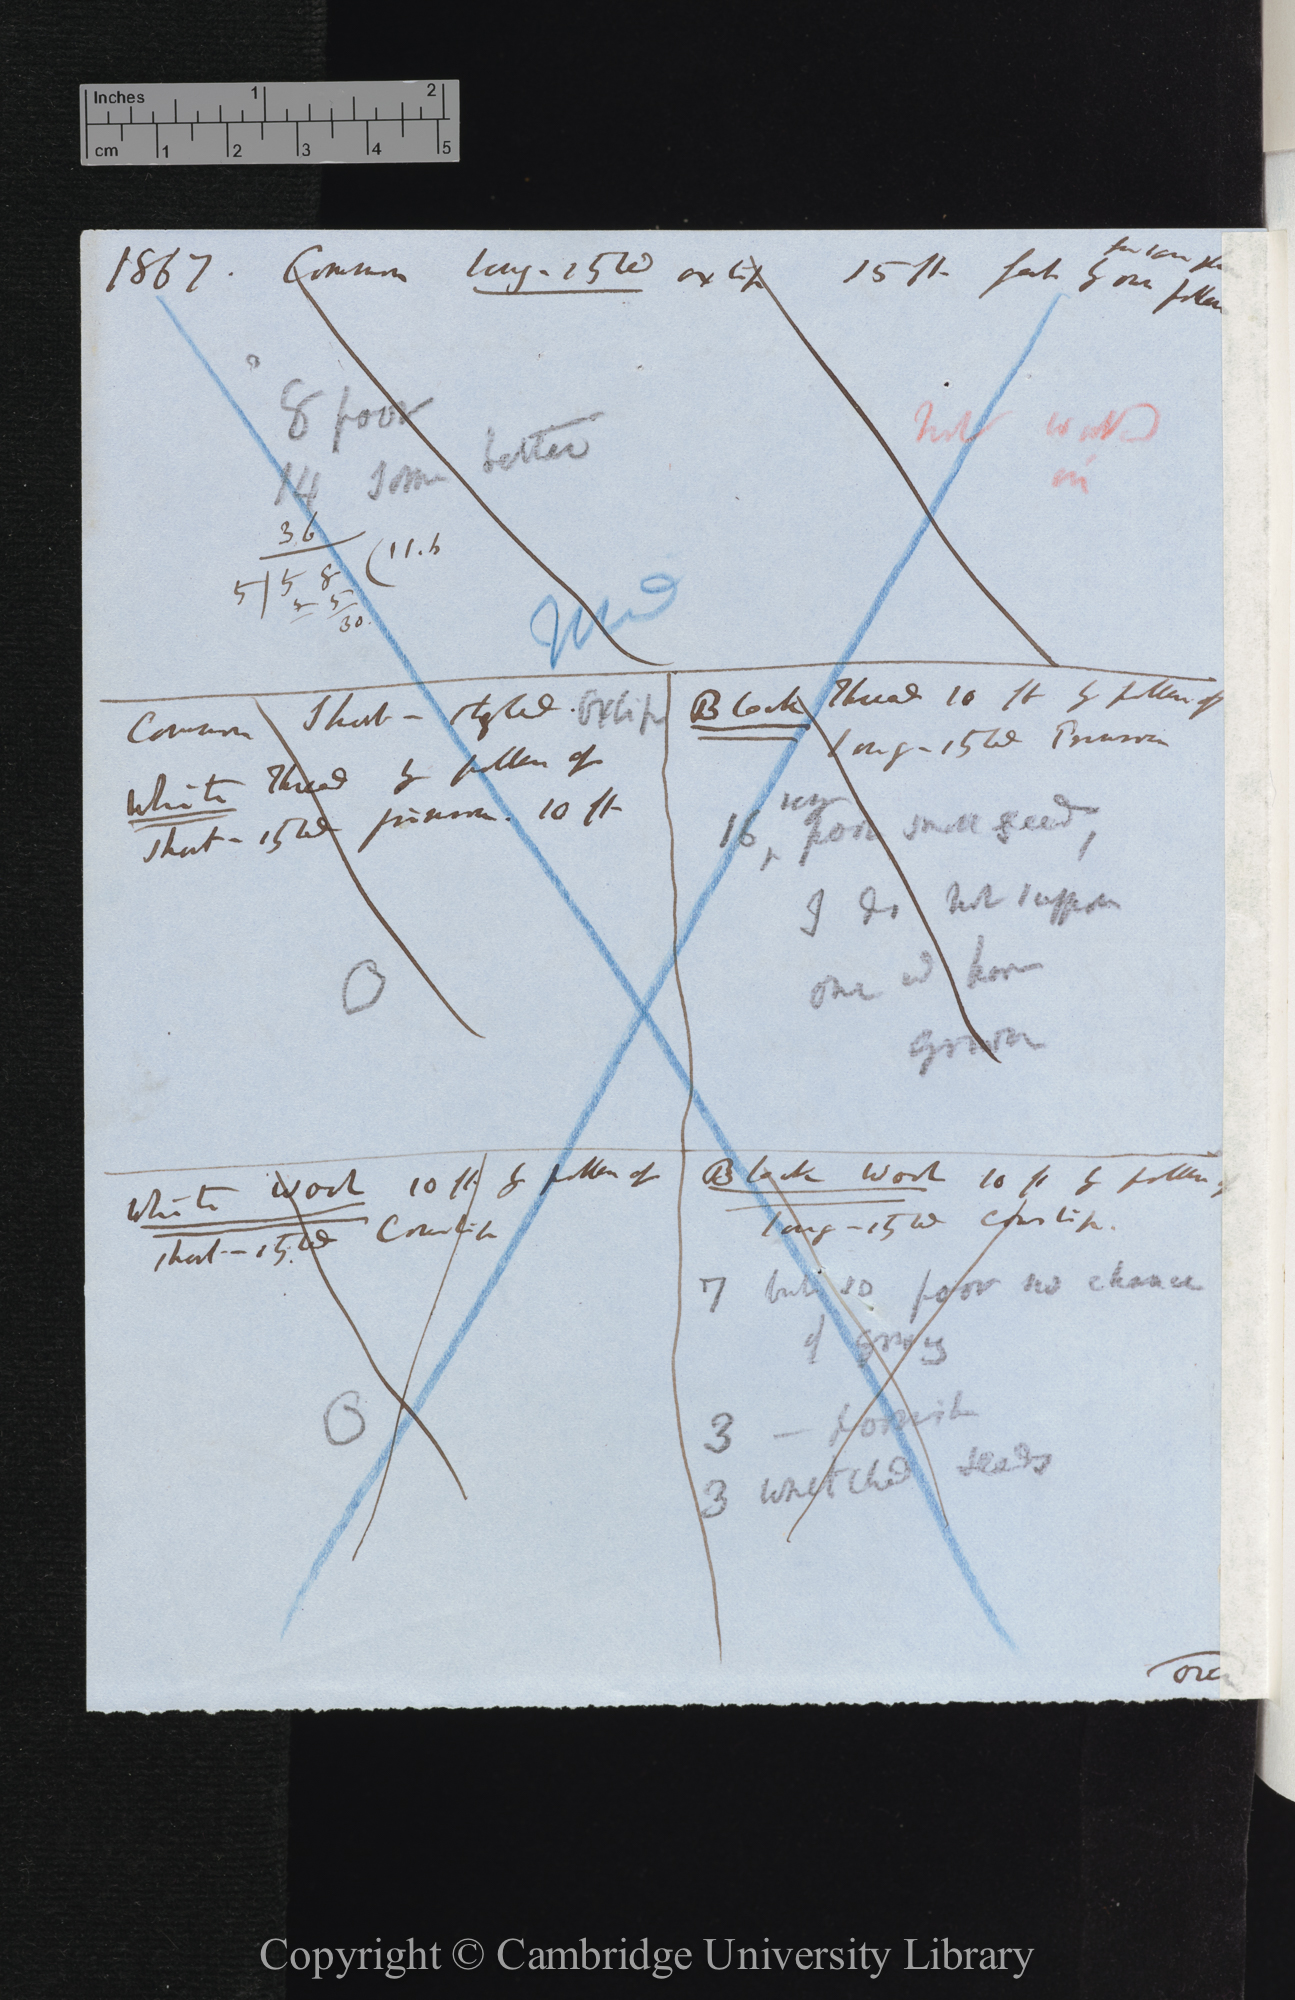 Inches 1 2
cm 1 2 3 4 5
1867. Common long-styled oxlip 15 fl fert by own pollen
8 poor
14 some better
36
5 | 5 8 (11.6
5 5
30
not worked
in
Used
Common Short-styled. Oxlip
White Thread by pollen of
short-styled primrose. 10 fl
O
Black Thread 10 fl by pollen of
long-styled Primrose
16, very poor small seed,
I do not suppose
one wd have
grown
White Wool 10 fl by pollen of
short-styled Cowslip
O
Black Wool 10 fl by pollen of
long-styled cowslip.
7 but so poor no chance
of growg
3 — poorish
3 wretched seeds
over
Copyright © Cambridge University Library